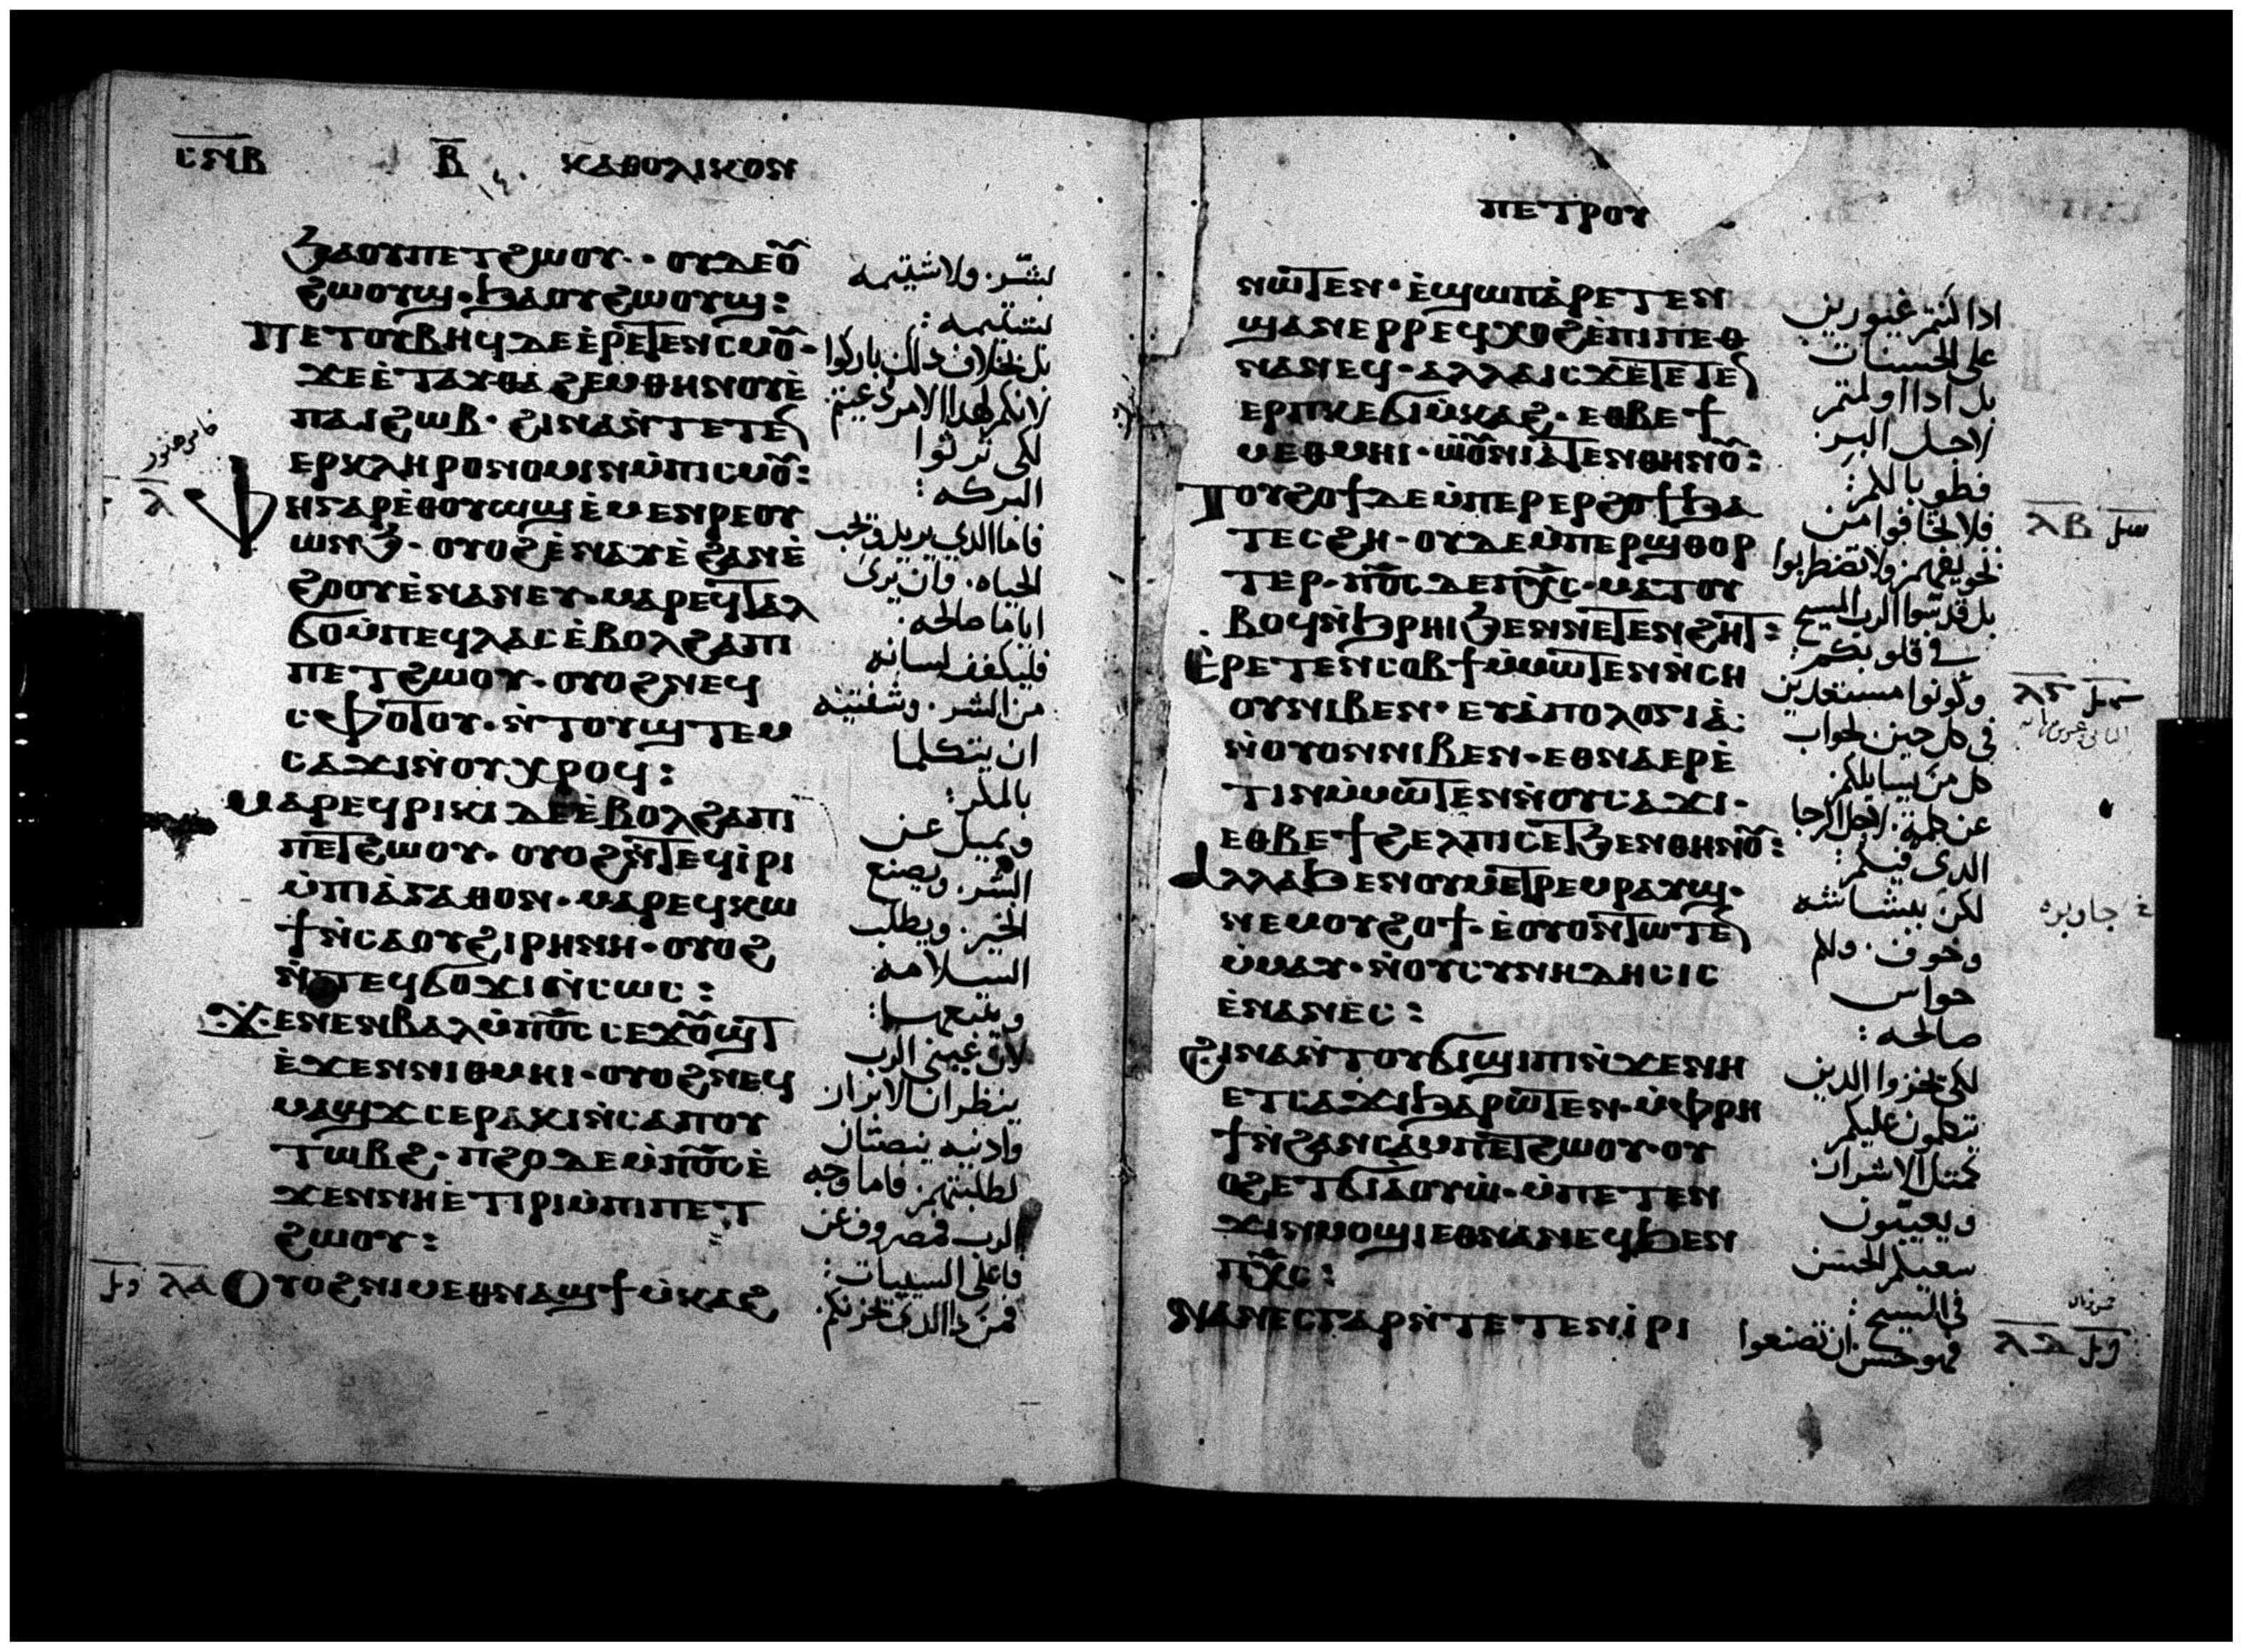 ⲥⲛⲃ ⲃ̅ ⲕⲁⲑⲟⲗⲓⲕⲟⲛ
ϧⲁⲟⲩⲡⲉⲧϩⲱⲟⲩ· ⲟⲩⲇⲉⲟ̅ⲩ̅
ϩⲱⲟⲩϣ· ϧⲁⲟⲩϩⲱⲟⲩϣ:
ⲡⲉⲧⲟⲩⲃⲏϥ ⲇⲉ ⲉ̀ⲣⲉⲧⲉⲛⲥⲙⲟ̅ⲩ̅·
ϫⲉ ⲉ̀ⲧⲁⲩⲑⲁϩⲉⲙⲑⲏⲛⲟⲩ ⲉ̀
ⲡⲁⲓϩⲱⲃ· ϩⲓⲛⲁ ⲛ̀ⲧⲉⲧⲉⲛ
ⲉⲣⲕⲗⲏⲣⲟⲛⲟⲙⲓⲛ ⲙ̀ⲡⲓⲥⲙⲟ̅ⲩ̅:
ⲗ̅ ⲫⲏ ⲅⲁⲣ ⲉ̀ⲑⲟⲩⲱϣ ⲉ̀ⲙⲉⲛⲣⲉ ⲟⲩ
ⲱⲛϧ· ⲟⲩⲟϩ ⲉ̀ⲛⲁⲩ ⲉ̀ϩⲁⲛⲉ̀
ϩⲟⲟⲩ ⲉ̀ⲛⲁⲛⲉⲩ· ⲙⲁⲣⲉϥⲧⲁⲗ
ϭⲟ ⲙ̀ⲡⲉϥⲗⲁⲥ ⲉ̀ⲃⲟⲗϩⲁ ⲡⲓ
ⲡⲉⲧϩⲱⲟⲩ· ⲟⲩⲟϩ ⲛⲉϥ
ⲥⲫⲟⲧⲟⲩ· ⲛ̀ⲧⲟⲩϣⲧⲉⲙ
ⲥⲁϫⲓ ⲛ̀ⲟⲩⲭⲣⲟϥ:
ⲙⲁⲣⲉϥⲣⲓⲕⲓ ⲇⲉ ⲉ̀ⲃⲟⲗϩⲁ ⲡⲓ
ⲡⲉⲧϩⲱⲟⲩ· ⲟⲩⲟϩ ⲛ̀ⲧⲉϥⲓ̀ⲣⲓ
ⲙ̀ⲡⲓⲁ̀ⲅⲁⲑⲟⲛ· ⲙⲁⲣⲉϥⲕⲱ
ϯ ⲛ̀ⲥⲁ ⲟⲩϩⲓⲣⲏⲛⲏ· ⲟⲩⲟϩ
ⲛ̀ⲧⲉϥϭⲟϫⲓ ⲛ̀ⲥⲱⲥ:
ϫⲉ ⲛⲉⲛⲃⲁⲗ ⲙ̀ⲡ̅ⲟ̅ⲥ̅ ⲥⲉϫⲟⲩϣⲧ
ⲉ̀ϫⲉⲛ ⲛⲓⲑⲙⲏⲓ· ⲟⲩⲟϩ ⲛⲉϥ
ⲙⲁϣϫ ⲥⲉⲣⲁⲕⲓ ⲛ̀ⲥⲁ ⲡⲟⲩ
ⲧⲱⲃϩ· ⲡϩⲟ ⲇⲉ ⲙ̀ⲡ̅ⲟ̅ⲥ̅ ⲉ̀
ϫⲉⲛ ⲛⲏ ⲉ̀ⲧⲓⲣⲓ ⲙ̀ⲡⲓⲡⲉⲧ
ϩⲱⲟⲩ:
ⲗⲁ ⲟⲩⲟϩ ⲛⲓⲙ ⲉⲑⲛⲁϣϯⲙ̀ⲕⲁϩ
بشر. ولا شتيمه
بشتيمه:
بل بخلاف ذلك باركوا
لانكم لهذا الامر دعيتم
لكي ترثوا
البركه:
فاما الدي يريد وتحب
الحياه. وان يرى
اياما صالحه.
فليكفف لسانه
من الشر. وشفتيه
ان يتكلما
بالمكر:
ويميل عن
الشر. ويصنع
الخير. ويطلب
السلامه
ويتبعها:
لان عيني الرب
ينظران الابرار
وادنيه ينصتان
لطلبتهم. فاما وجه
الرب فمصروف عن
فاعلى السييات:
فمن دا الدي يحزنكم
ⲡⲉⲧⲣⲟⲩ
ⲛⲱⲧⲉⲛ· ⲉ̀ϣⲱⲡ ⲁ̀ⲣⲉⲧⲉⲛ
ϣⲁⲛⲉⲣⲣⲉϥⲭⲟϩ ⲉ̀ⲡⲓⲡⲉⲑ
ⲛⲁⲛⲉϥ· ⲁⲗⲗⲁ ⲓⲥϫⲉ ⲧⲉⲧⲉⲛ
ⲉⲣⲡⲕⲉϭⲓⲙ̀ⲕⲁϩ· ⲉⲑⲃⲉ ϯ
ⲙⲉⲑⲙⲏⲓ· ⲱ̀ⲟⲩⲛⲓⲁ̀ⲧⲉⲛⲑⲏⲛⲟ̅ⲩ̅:
ⲧⲟⲩϩⲟϯ ⲇⲉ ⲙ̀ⲡⲉⲣⲉⲣϩⲟϯ ϧⲁ
ⲧⲉⲥϩⲏ· ⲟⲩⲇⲉ ⲙ̀ⲡⲉⲣϣⲑⲟⲣ
ⲧⲉⲣ· ⲡ̅ⲟ̅ⲥ̅ ⲇⲉ ⲡ̅ⲭ̅ⲥ̅· ⲙⲁⲧⲟⲩ
ⲃⲟϥ ⲛ̀ϧⲣⲏⲓ ϧⲉⲛ ⲛⲉⲧⲉⲛϩⲏⲧ:
ⲉ̀ⲣⲉⲧⲉⲛⲥⲟⲃϯ ⲙ̀ⲙⲱⲧⲉⲛ ⲛ̀ⲥⲏ
ⲟⲩ ⲛⲓⲃⲉⲛ· ⲉⲩⲁ̀ⲡⲟⲗⲟⲅⲓⲁ̀:
ⲛ̀ⲟⲩⲟⲛ ⲛⲓⲃⲉⲛ· ⲉⲑⲛⲁⲉⲣⲉ̀
ⲧⲓⲛ ⲙ̀ⲙⲱⲧⲉⲛ ⲛ̀ⲟⲩⲥⲁϫⲓ·
ⲉⲑⲃⲉ ϯϩⲉⲗⲡⲓⲥ ⲉⲧϧⲉⲛⲑⲏⲛⲟ̅ⲩ̅:
ⲁⲗⲗⲁ ϧⲉⲛ ⲟⲩⲙⲉⲧⲣⲉⲙⲣⲁⲩϣ·
ⲛⲉⲙ ⲟⲩϩⲟϯ· ⲉ̀ⲟⲩⲟⲛⲧⲱⲧⲉⲛ
ⲙ̀ⲙⲁⲩ· ⲛ̀ⲟⲩⲥⲩⲛⲏⲇⲏⲥⲓⲥ
ⲉ̀ⲛⲁⲛⲉ̀ⲥ:
ϩⲓⲛⲁ ⲛ̀ⲧⲟⲩϭⲓϣⲓⲡⲓ ⲛ̀ϫⲉ ⲛⲏ
ⲉⲧⲥⲁϫⲓ ϧⲁⲣⲱⲧⲉⲛ· ⲙ̀ⲫⲣⲏ
ϯ ⲛ̀ϩⲁⲛⲥⲁⲙⲡⲉⲧϩⲱⲟⲩ· ⲟⲩ
ⲟϩ ⲉⲧϭⲓⲁ̀ⲟⲩⲱ̀· ⲙ̀ⲡⲉⲧⲉⲛ
ϫⲓⲛⲙⲟϣⲓ ⲉⲑⲛⲁⲛⲉϥ ϧⲉⲛ
ⲡ̅ⲭ̅ⲥ̅:
ⲛⲁⲛⲉⲥ ⲅⲁⲣ ⲛ̀ⲧⲉⲧⲉⲛⲓ̀ⲣⲓ
ادا كنتم غيورين
على الحسنات
بل ادا اولمتم
لاجل البر.
فطوباكم:
فلا تخافوا من
تخويفهم ولا تضطربوا
بل قدسوا الرب المسيح
في قلوبكم:
وكونوا مستعدين
في كل حين لجواب
كل من يسايلكم
عن كلمة. لاجل الرجا
الدي فيكم:
لكن ببشاشه
وخوف. ولكم
حواس
صالحه:
لكي يخزوا الدين
يتكلمون عليكم
كمثل الاشرار.
ويعيبون
سعيكم الحسن
في المسيح:
فهو حسن ان تصنعوا
ⲗⲃ
ⲗⲅ
ⲗⲇ